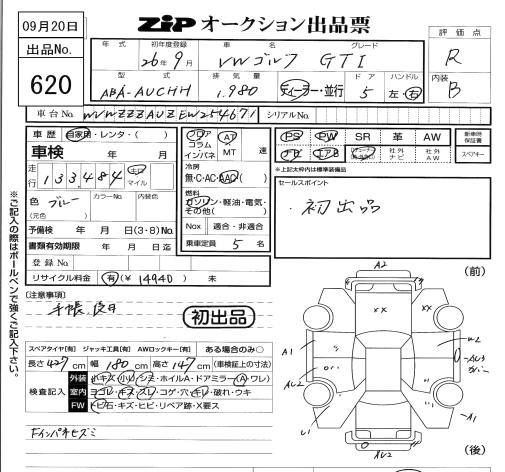 09月20日
ZiP オークション出品票
出品No.
620
年式 初年度登録 車名 グレード
26年9月 VWゴルフ GTI
型式 排気量 ドア ハンドル
ABA-AUCHH 1,980 ディーラー・並行 5 左・右
評価点
R
内装
B
車台No. WVWZZZAUZEW254671 シリアルNo.
車歴 自家用・レンタ・( )
車検 年 月
走行 133,484 キロ マイル
色 ブルー カラーNo. 内装色
(元色)
予備検 年 月 日(3・8)No.
書類有効期限 年 月 日迄
登録No.
リサイクル料金 有(¥ 14940) 未
フロア コラム インパネ AT MT 速
冷房
無・C・AC・AAC
燃料
ガソリン・軽油・電気・その他( )
Nox 適合・非適合
乗車定員 5 名
PS PW SR 革 AW
ナビ エアB 社外ナビ 社外AW
新車時保証書
スペアキー
*上記太枠内は標準装備品
セールスポイント
・初出品
※ご記入の際はボールペンで強くご記入下さい。
[注意事項]
手帳、取目
初出品
スペアタイヤ[有] ジャッキ工具[有] AWロックキー[有] ある場合のみ○
長さ 427cm 幅 180cm 高さ 147cm (車検証上の寸法)
検査記入
外装 小キズ・小凹・シミ・ホイルA・ドアミラー(A・ワレ)
室内 ヨゴレ・キズ・スレ・コゲ・穴・キレ・破れ・ウキ
FW 飛石・キズ・ヒビ・リペア跡・X要ス
Fインパネキズミ
(前)
A2
XX
XX
A1
W2
AU3
カバー
AU2
A1
U1
AU2
(後)